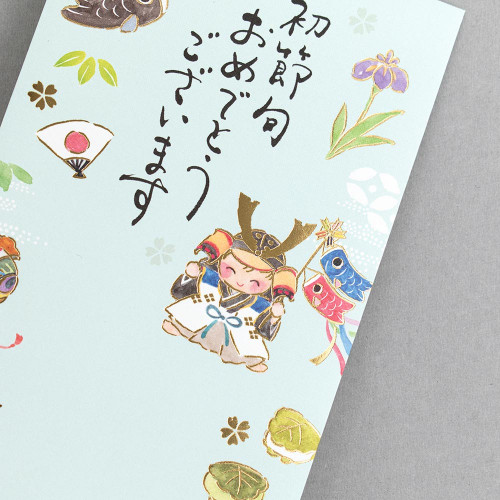 初節句
おめでとう
ございます